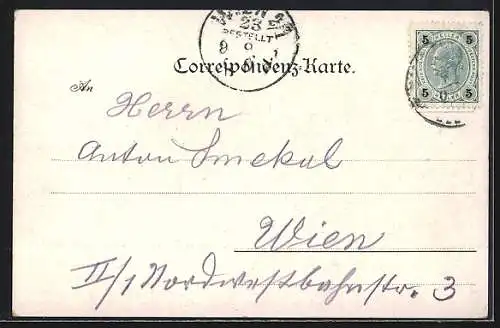 WIEN
23
BESTELLT
Correspondenz-Karte.
5 5
5 5
An
Herrn
Anton Smekal
Wien
II/1 Nordwestbahnstr. 3